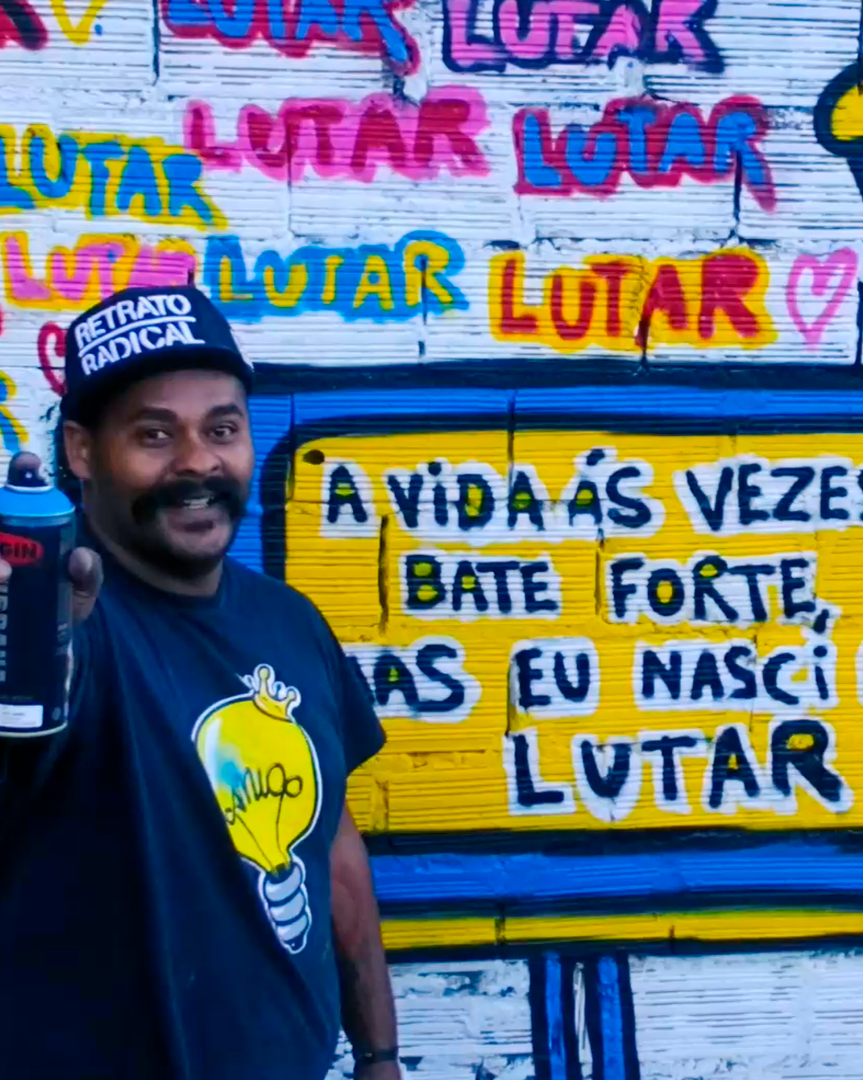 LUTAR LUTAR
LUTAR LUTAR
LUTAR
LUTAR LUTAR LUTAR
RETRATO
RADICAL
A VIDA ÁS VEZES
BATE FORTE,
MAS EU NASCI
LUTAR
amigo